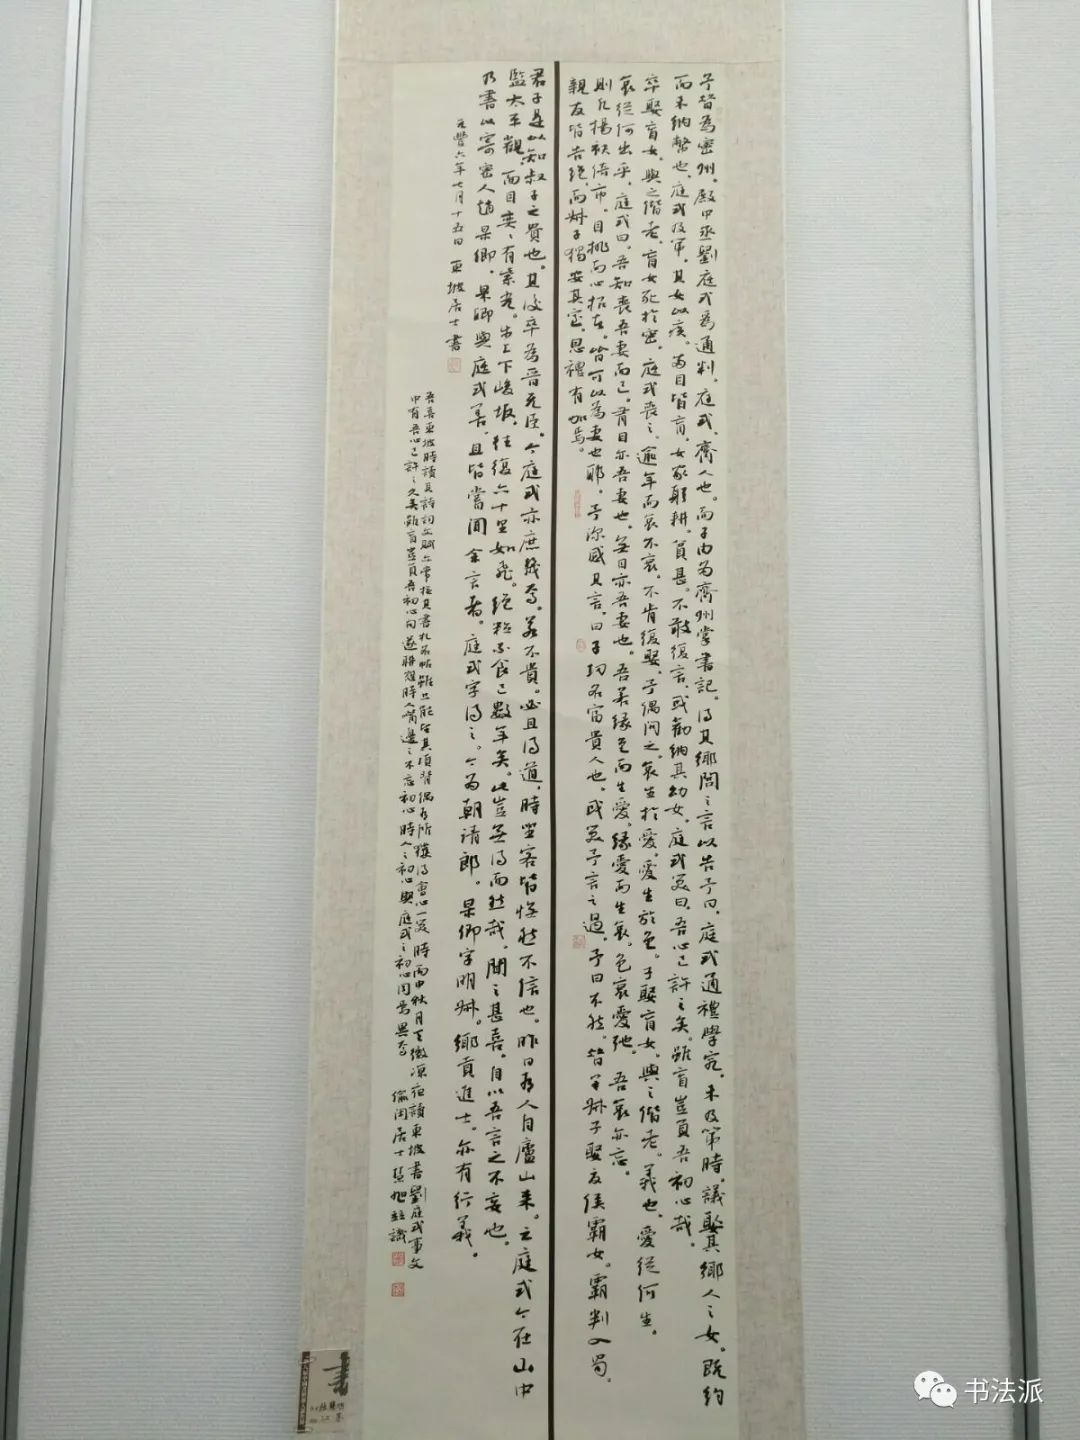 予昔為密州。殿中丞劉庭式為通判。庭式。齊人也。而子由為齊州掌書記。得其鄉閭之言以告予曰。庭式通禮學究。未及第時。議娶其鄉人之女。既約
而未納幣也。庭式及第。其女以疾。兩目皆盲。女家躬耕。貧甚。不敢復言。或勸納其幼女。庭式笑曰。吾心已許之矣。雖盲豈負吾初心哉。
卒娶盲女。與之偕老。盲女死於密。庭式喪之。逾年而哀不衰。不肯復娶。予偶問之。哀生於愛。愛生於色。子娶盲女。與之偕老。義也。愛從何生。
哀從何出乎。庭式曰。吾知喪吾妻而已。有目亦吾妻也。無目亦吾妻也。吾若緣色而生愛。緣愛而生哀。色衰愛弛。吾哀亦忘。
則凡揚袂倚市。目挑而心招者。皆可以為妻也耶。予深感其言。曰子功名富貴人也。或笑予言之過。予曰不然。昔羊叔子娶夏侯霸女。霸判入蜀。
親友皆告絕。而叔子獨安其室。恩禮有加焉。
君子是以知叔子之貴也。其後卒為晉元臣。今庭式亦庶幾焉。若不貴。必且得道。時坐客皆憮然不信也。昨日有人自廬山來。云庭式今在山中
監太平觀。面目奕奕有紫光。步上下峻坂。往復六十里如飛。絕粒不食已數年矣。此豈無得而然哉。聞之甚喜。自以吾言之不妄也。
乃書以寄密人趙杲卿。杲卿與庭式善。且皆嘗聞余言者。庭式字得之。今為朝請郎。杲卿字明叔。鄉貢進士。亦有行義。
元豐六年七月十五日 東坡居士書
吾喜東坡時讀其詩詞文賦亦常檢其書札名帖雖只能望其項背偶有所獲得會心一笑時丙申秋月天微涼夜讀東坡書劉庭式事文
中有吾心已許之矣雖盲豈負吾初心句
不忘初心時人之初心與庭式之初心同焉異焉
居士
旭並識
書
书法派